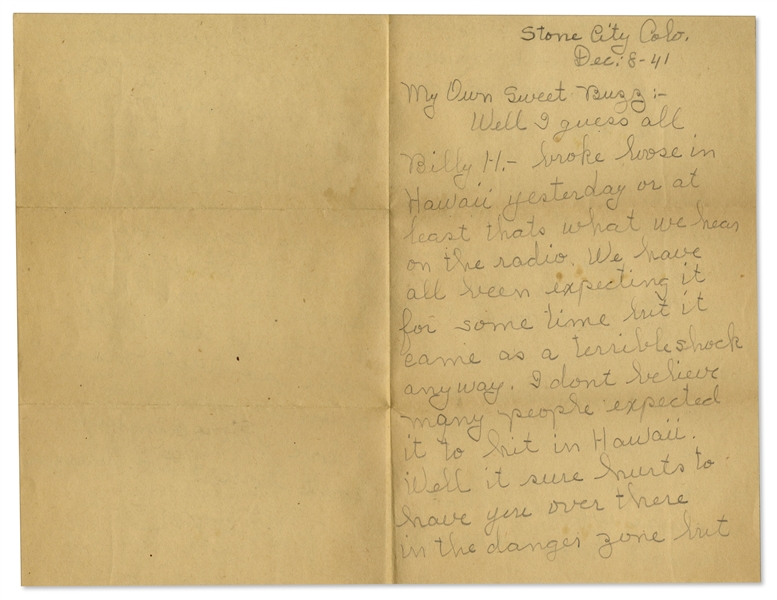 Stone City Colo.
Dec. 8-41
My Own Sweet Buzz:-
Well I guess all
Billy H.- broke loose in
Hawaii yesterday or at
least thats what we hear
on the radio. We have
all been expecting it
for some time but it
came as a terrible shock
anyway. I dont believe
many people expected
it to hit in Hawaii.
Well it sure hurts to
have you over there
in the danger zone but